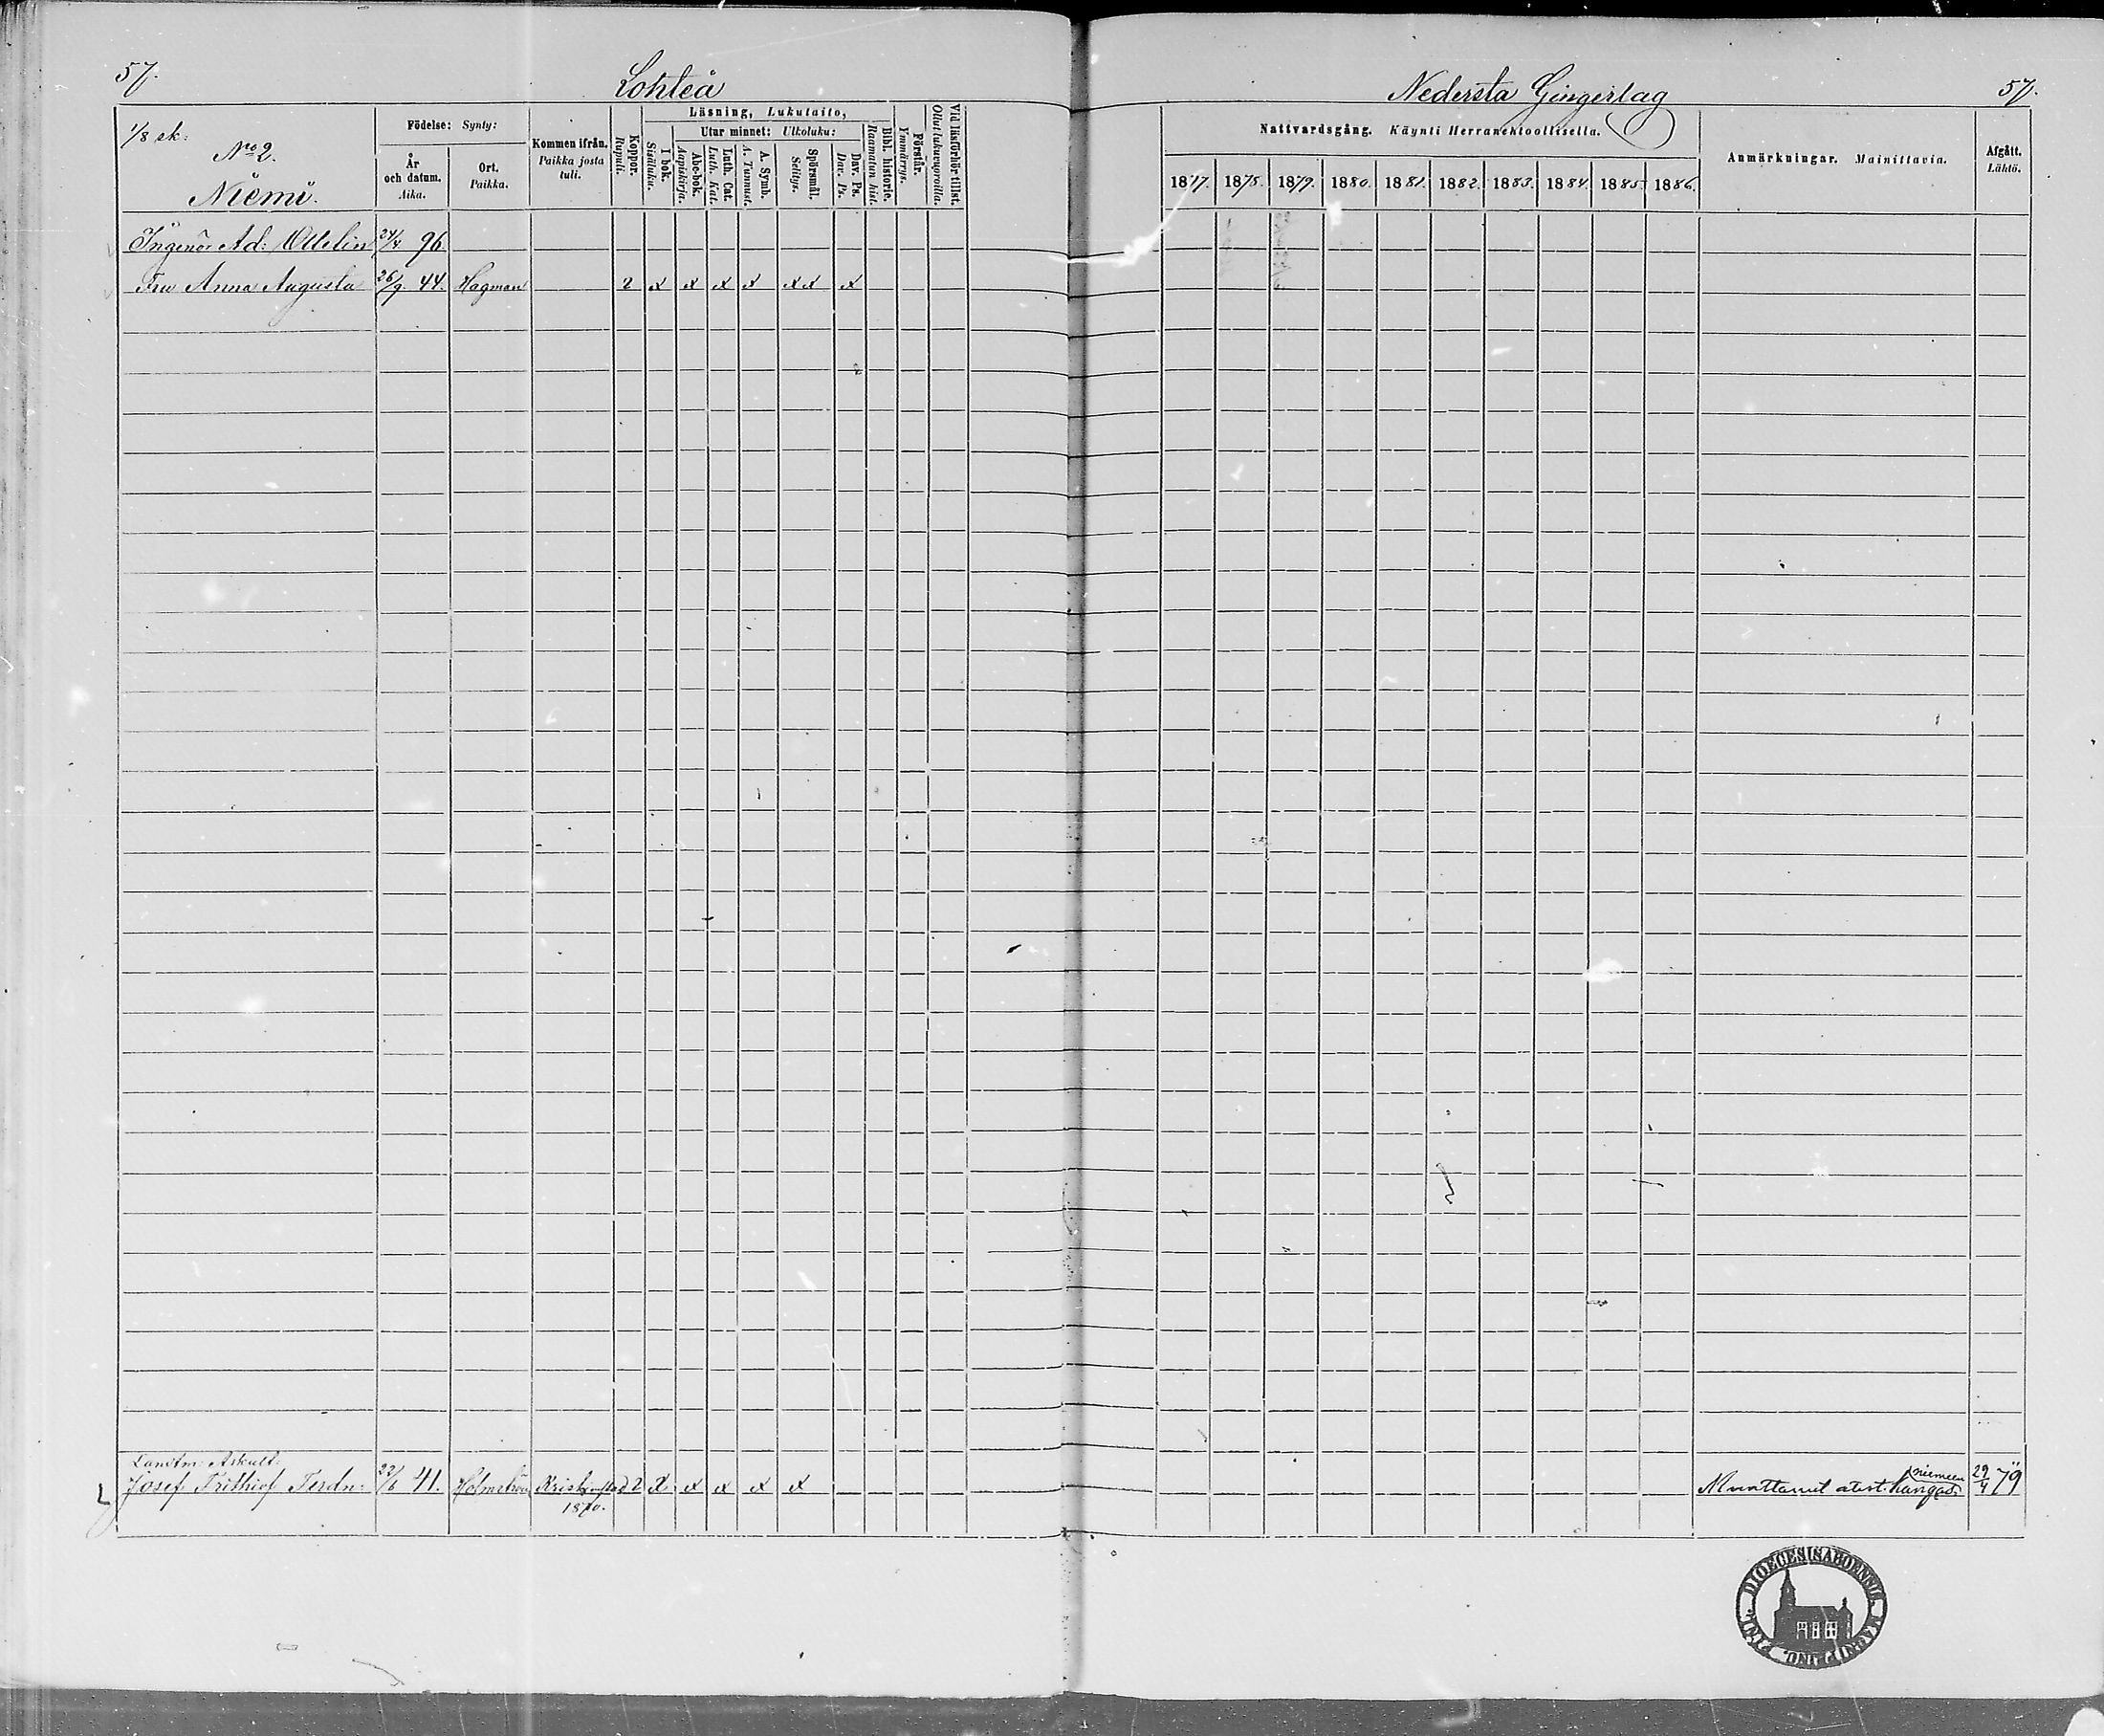 57.
Lohteå
Nedersta Gingerlag
57.
1/8 sk:
No 2.
Niemi.
Födelse: Synty:
År och datum. Aika.
Ort. Paikka.
Kommen ifrån. Paikka josta tuli.
Koppor. Rupuli.
Läsning, Lukutaito,
I bok. Sisäluku.
Utur minnet: Ulkoluku:
Abc-bok. Aapiskirja.
Luth. Cat. Luth. Kat.
A. Symb. A. Tunnust.
Spörsmål. Selitys.
Dav. Ps. Dav. Ps.
Bibl. historie. Raamatun hist.
Förstår. Ymmärrys.
Vid läsförhör tillst. Ollut lukuvuoroilla.
Nattvardsgång. Käynti Herranehtoollisella.
1877. 1878. 1879. 1880. 1881. 1882. 1883. 1884. 1885. 1886.
Anmärkningar. Mainittavia.
Afgått. Lähtö.
Ingenör Ad: Ottelin 24/4 96.
Fru Anna Augusta 26/9 44. Hagman 2 x x x x x x x
Landtm: Askult:
Josef Frithiof Ferdn: 22/8 41. Holmström Kristinestad 2 x x x x x
1870.
niemeen
Muuttanut atest. Kangas 29/4 79